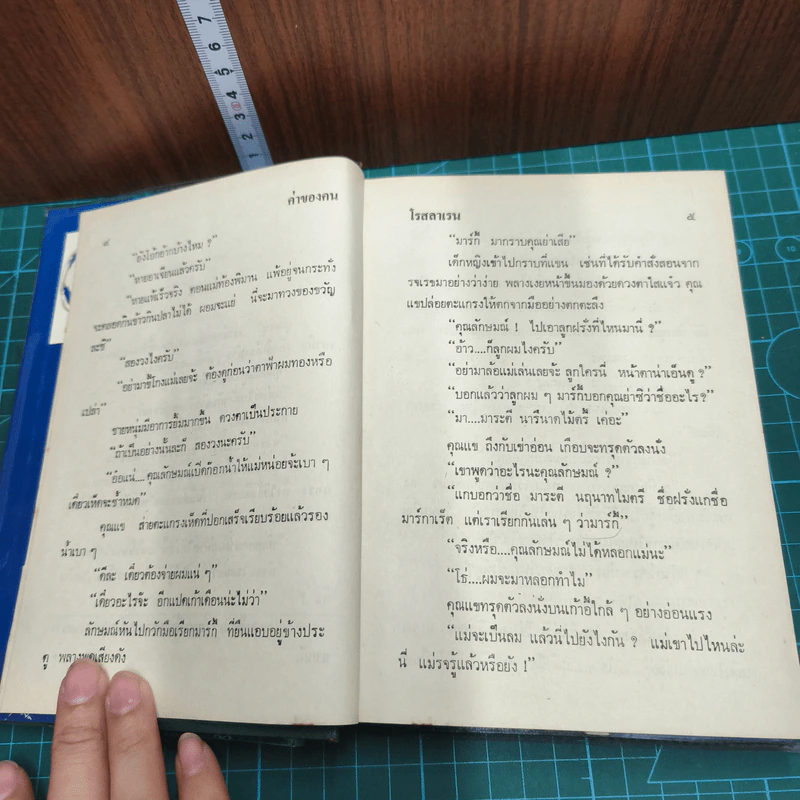 7
6
5
4
3
2
1
ค่าของคน
๔
"ยังโอ้กอ้ากบ้างไหม ?"
"หายอาเจียนแล้วครับ"
"หายแพ้เร็วจริง ตอนแม่ท้องพิมาน แพ้อยู่จนกระทั่ง
จะคลอดกินข้าวกินปลาไม่ได้ ผอมจะแย่ นี่จะมาทวงของขวัญ
ละซี"
"สองวงไงครับ"
"อย่ามาขี้โกงแม่เลยจ้ะ ต้องดูก่อนว่าตาฟ้าผมทองหรือ
เปล่า"
ชายหนุ่มมีอาการอิ้มมากขึ้น ดวงตาเป็นประกาย
"ถ้าเป็นอย่างนั้นละก็ สองวงนะครับ"
"อ้อแน่....คุณลักษมณ์เปิดก๊อกน้ำให้แม่หน่อยจ้ะเบา ๆ
เดี๋ยวเห็ดจะช้ำหมด"
คุณแข ส่ายตะแกรงเห็ดที่ปอกเสร็จเรียบร้อยแล้วรอง
น้ำเบา ๆ
"ดีละ เดี๋ยวต้องจ่ายผมแน่ ๆ"
"เดี๋ยวอะไรจ๊ะ อีกแปดเก้าเดือนน่ะไม่ว่า"
ลักษมณ์หันไปกวักมือเรียกมาร์กี้ ที่ยืนแอบอยู่ข้างประ
ตู พลางพูดเสียงดัง
โรสลาเรน
๕
"มาร์กี้ มากราบคุณย่าเสีย"
เด็กหญิงเข้าไปกราบที่แขน เช่นที่ได้รับคำสั่งสอนจาก
รจเรขมาอย่างว่าง่าย พลางเงยหน้าขึ้นมองด้วยดวงตาใสแจ๋ว คุณ
แขปล่อยตะแกรงให้ตกจากมืออย่างตกตะลึง
"คุณลักษมณ์ ! ไปเอาลูกฝรั่งที่ไหนมานี่ ?"
"อ้าว....ก็ลูกผมไงครับ"
"อย่ามาล้อแม่เล่นเลยจ้ะ ลูกใครนี่ หน้าตาน่าเอ็นดู ?"
"บอกแล้วว่าลูกผม ๆ มาร์กี้บอกคุณย่าซิว่าชื่ออะไร?"
"มา....มาระตี นารีนาดไม้ตรี้ เค่อะ"
คุณแข ถึงกับเข่าอ่อน เกือบจะทรุดตัวลงนั่ง
"เขาพูดว่าอะไรนะคุณลักษมณ์ ?"
"แกบอกว่าชื่อ มาระตี นฤนาทไมตรี ชื่อฝรั่งแกชื่อ
มาร์กาเร็ต แต่เราเรียกกันเล่น ๆ ว่ามาร์กี้"
"จริงหรือ....คุณลักษมณ์ไม่ได้หลอกแม่นะ"
"โธ่....ผมจะมาหลอกทำไม"
คุณแขทรุดตัวลงนั่งบนเก้าอี้ใกล้ ๆ อย่างอ่อนแรง
"แม่จะเป็นลม แล้วนี่ไปยังไงกัน ? แม่เขาไปไหนล่ะ
นี่ แม่รจรู้แล้วหรือยัง !"